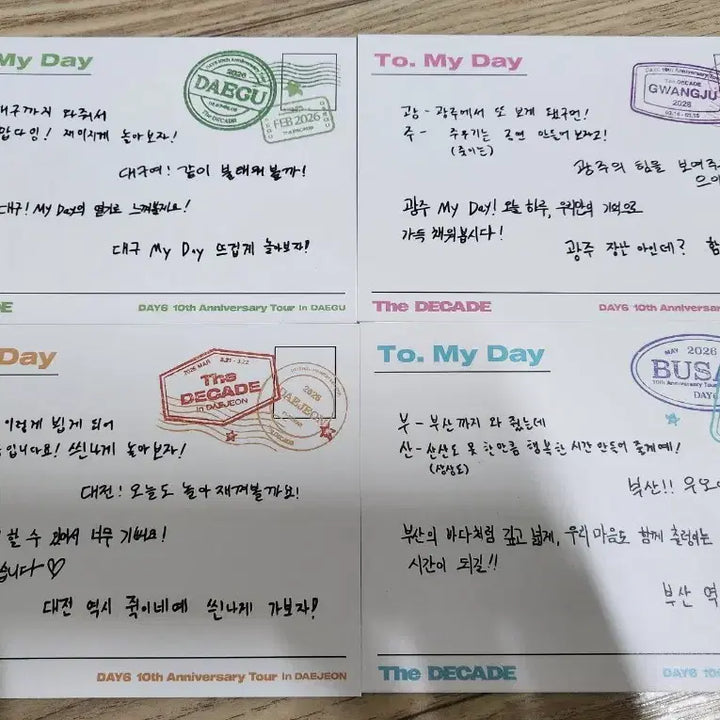 My Day
DAY6 10th Anniversary Tour
2026
DAEGU
The DECADE
FEB 2026
대구까지 와줘서
재미지게 놀아보자!
대구여! 같이 불태워볼까!
대구! My Day의 열기를 느껴볼게요!
대구 My Day 뜨겁게 놀아보자!
DE
DAY6 10th Anniversary Tour in DAEGU
To. My Day
The DECADE
GWANGJU
2026
광 - 광주에서 또 보게 됐구먼!
주 - 주우기는 공연 만들어보자고!
(죽이는)
광주의 힘을 보여주
으아
광주 My Day! 오늘 하루, 우리만의 기억으로
가득 채워봅시다!
광주 장난 아인데? 함
The DECADE
DAY6 10th Anniversary
Day
2026 MAR 3.21 - 3.22
The
DECADE
in DAEJEON
2026
DAEJEON
이렇게 뵙게 되어
입니다요! 씐나게 놀아보자!
대전! 오늘도 놀아재껴볼까요!
할 수 있어서 너무 기뻐요!
습니다~♡
대전 역시 쥑이네예 씐나게 가보자!
DAY6 10th Anniversary Tour in DAEJEON
To. My Day
MAY 2026
BUSA
10th Anniversary Tour
DAY6
부 - 부산까지 와 줬는데
산 - 산산도 못 한만큼 행복한 시간 만들어 줄게예!
(상상도)
부산!! 우오
부산의 바다처럼 깊고 넓게, 우리 마음도 함께 출렁이는
시간이 되길!!
부산 역
The DECADE
DAY6 10th